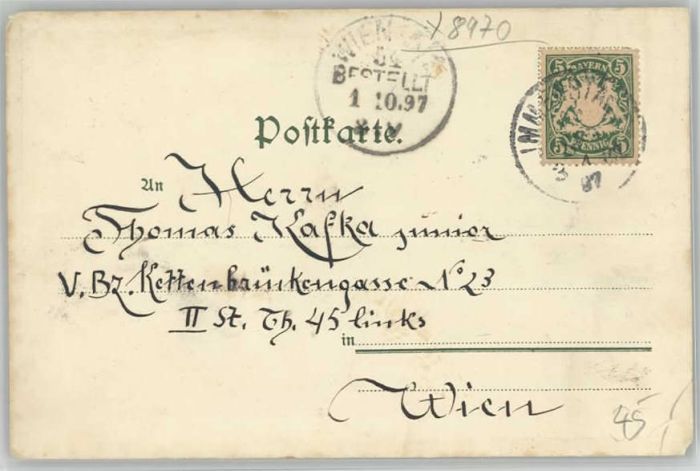 X 8970
WIEN
54
BESTELLT
1 10.97
5 BAYERN 5
5 PFENNIG 5
97
Postkarte.
An Herrn
Thomas Kafka junior
V. Bz. Kettenbrückengasse No 23
II St. Th. 45 links
in
Wien
45